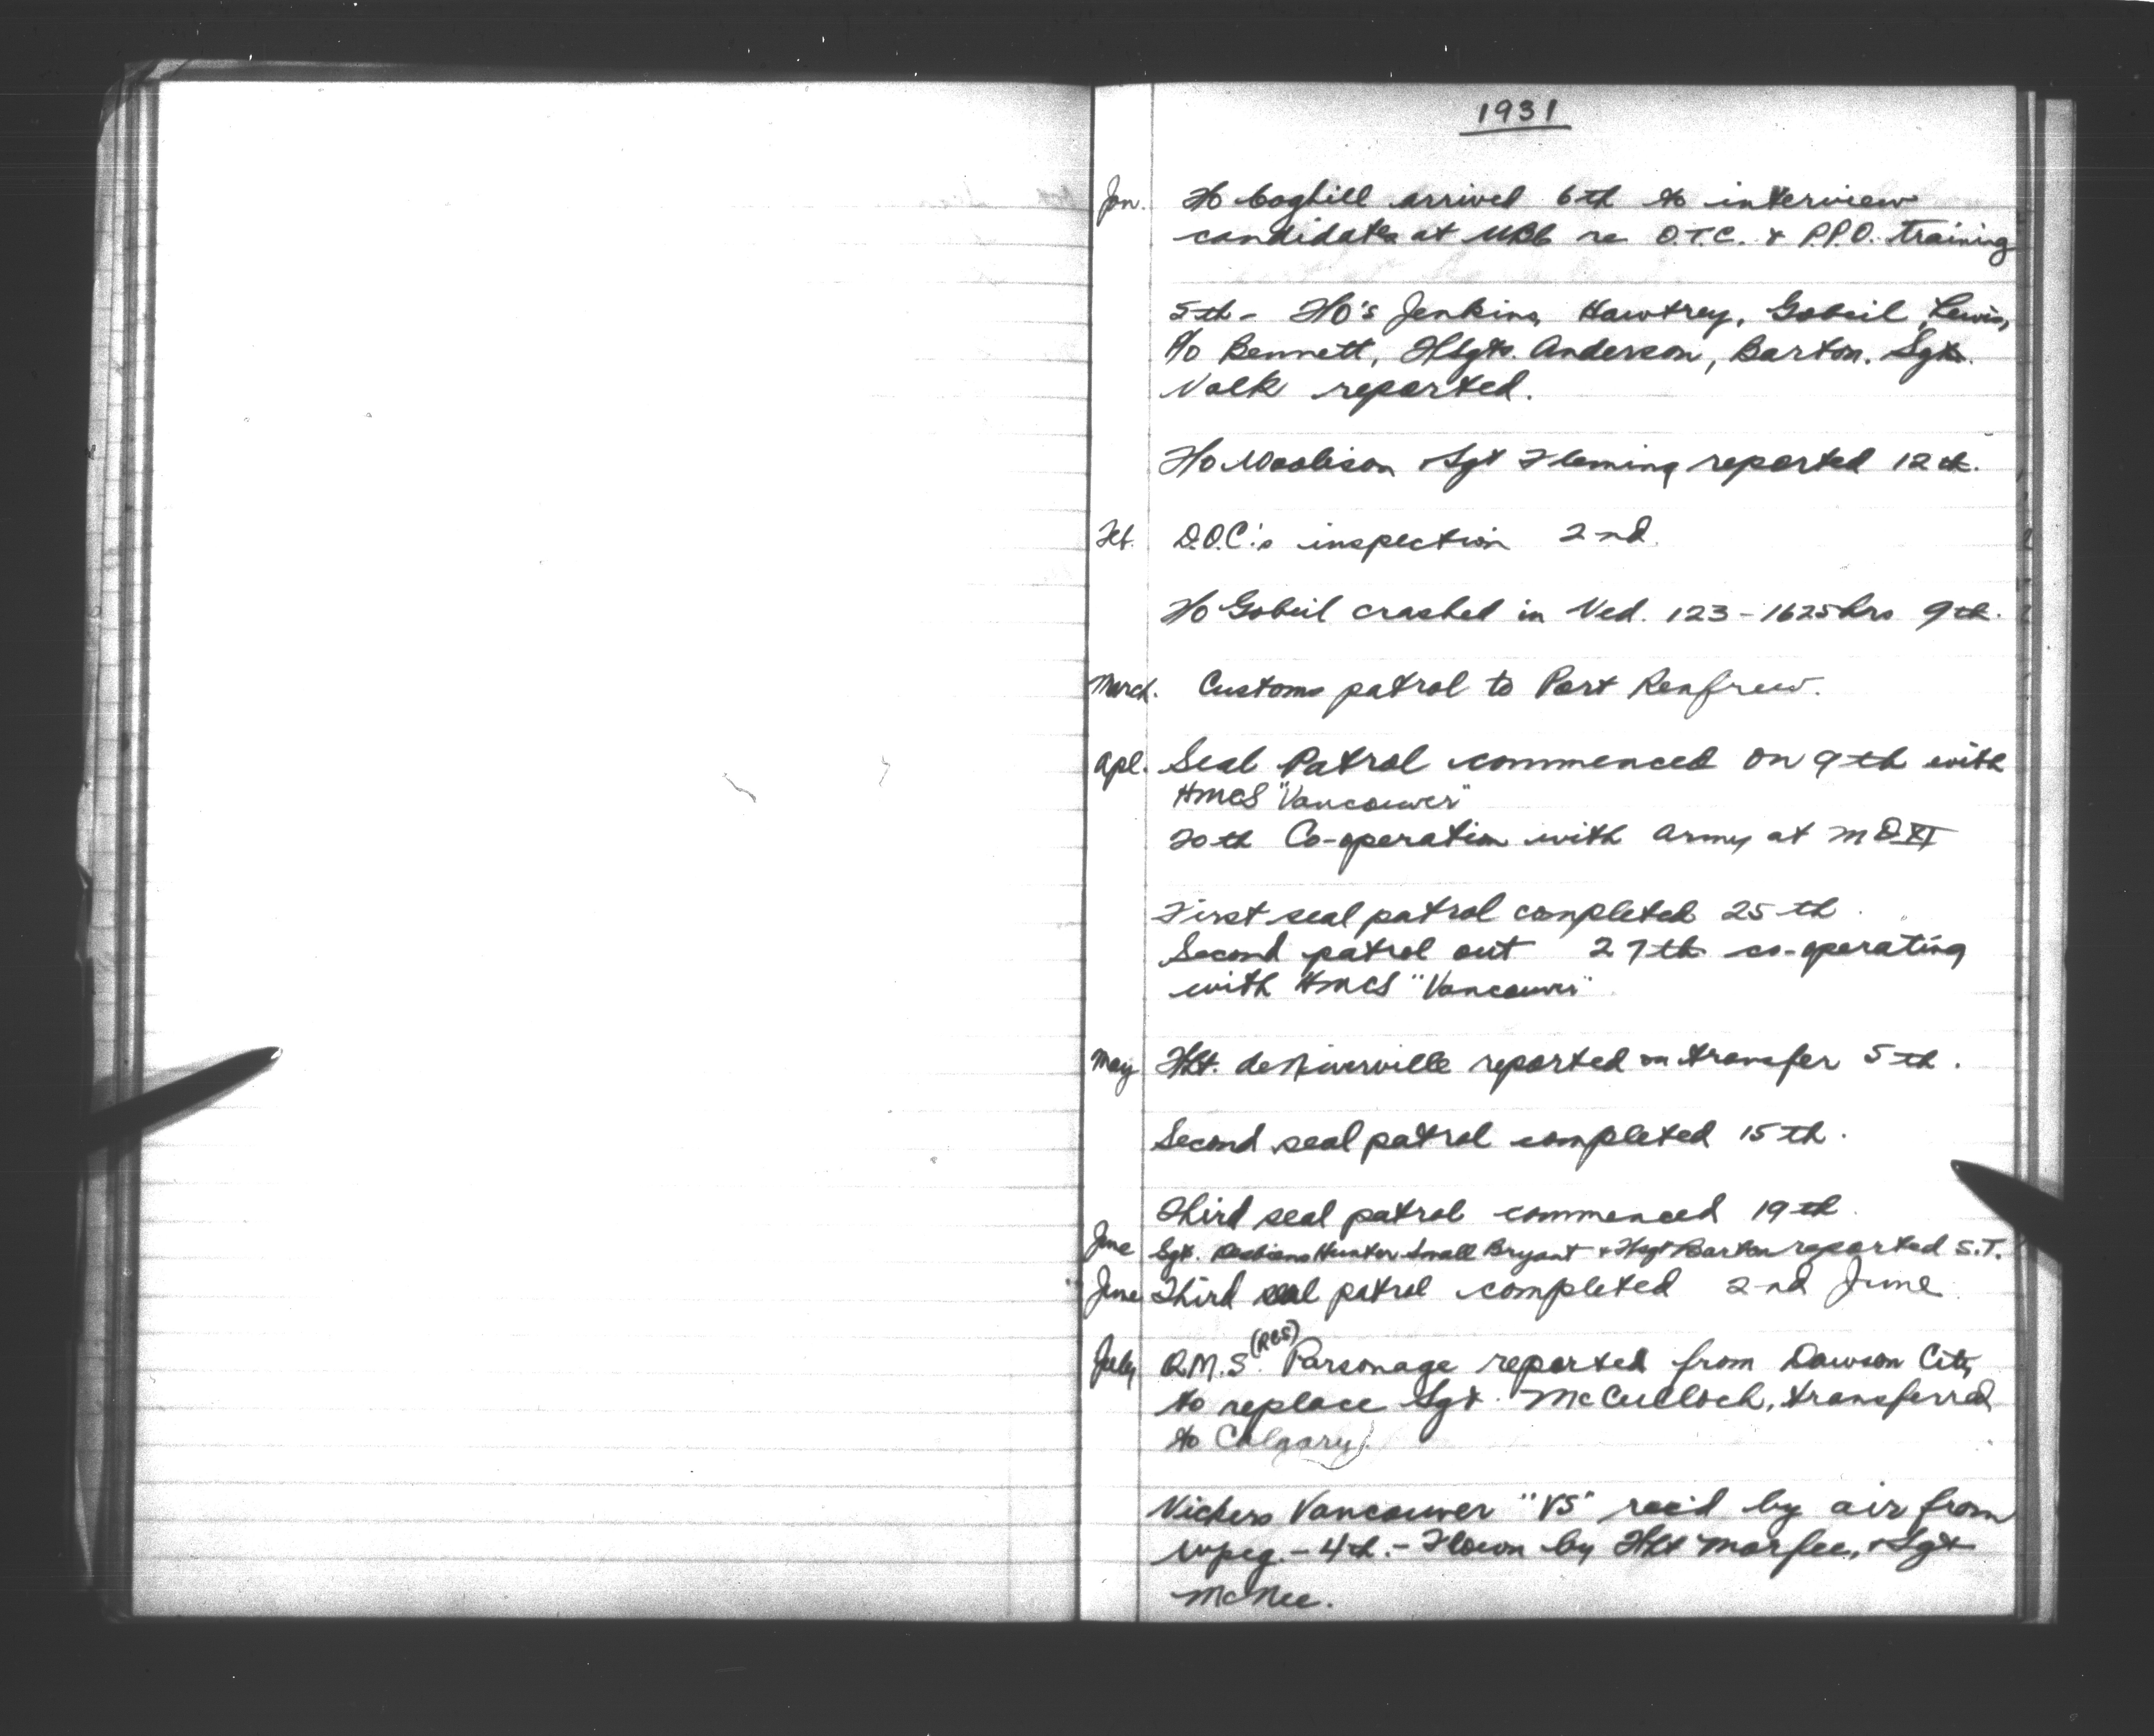 1931
Jan. F/O Coghill arrived 6th to interview
candidates at UBC re O.T.C. & P.P.O. training
5th - F/O's Jenkins, Hawtrey, Gobeil, Lewis,
P/O Bennett, F/Sgts. Anderson, Barton. Sgt.
Valk reported.
F/O Sgt Fleming reported 12th.
Feb. D.O.C.'s inspection 2nd.
F/O Gobeil crashed in Ved. 123 - 1625 hrs 9th.
March. Customs patrol to Port Renfrew.
Apl. Seal Patrol commenced on 9th with
HMCS "Vancouver"
20th Co-operation with Army at MD XI
First seal patrol completed 25th.
Second patrol out 27th co-operating
with HMCS "Vancouver"
May F/Lt. deNiverville reported on transfer 5th.
Second seal patrol completed 15th.
Third seal patrol commenced 19th.
June Sgt. Hunter Small Bryant & F/Sgt Barton reported S.T.
June Third seal patrol completed 2nd June
July Q.M.S. (RCS) Parsonage reported from Dawson City
to replace Sgt. McCulloch, transferred
to Calgary.
Vickers Vancouver "VS" rec'd by air from
Wpeg. - 4th. - Flown by F/Lt Marfee, & Sgt
McNee.